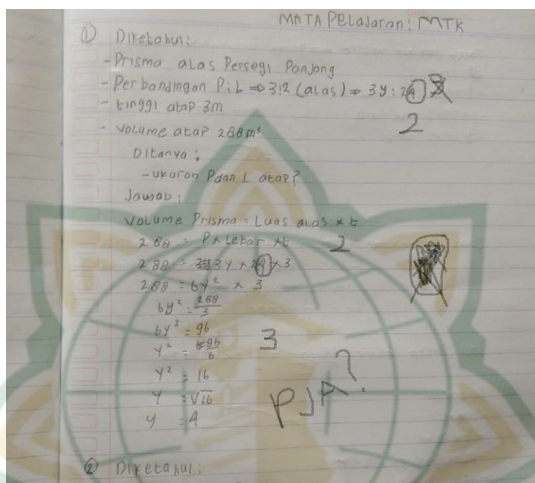 MATA PELAJARAN: MTK
① Diketahui:
- Prisma alas Persegi Panjang
- Perbandingan P:L ⇒ 3:2 (alas) ⇒ 3y : 2y
2
- tinggi atap 3m
- Volume atap 288m³
Ditanya:
- ukuran P dan L atap?
Jawab:
Volume Prisma = Luas alas x t
288 = P x Lebar x t
2
288 = 3y x 2y x 3
288 = 6y² x 3
6y² = 288/3
6y² = 96
3
y² = 96/6
y² = 16
y = √16
y = 4
PJA?
② Diketahui: